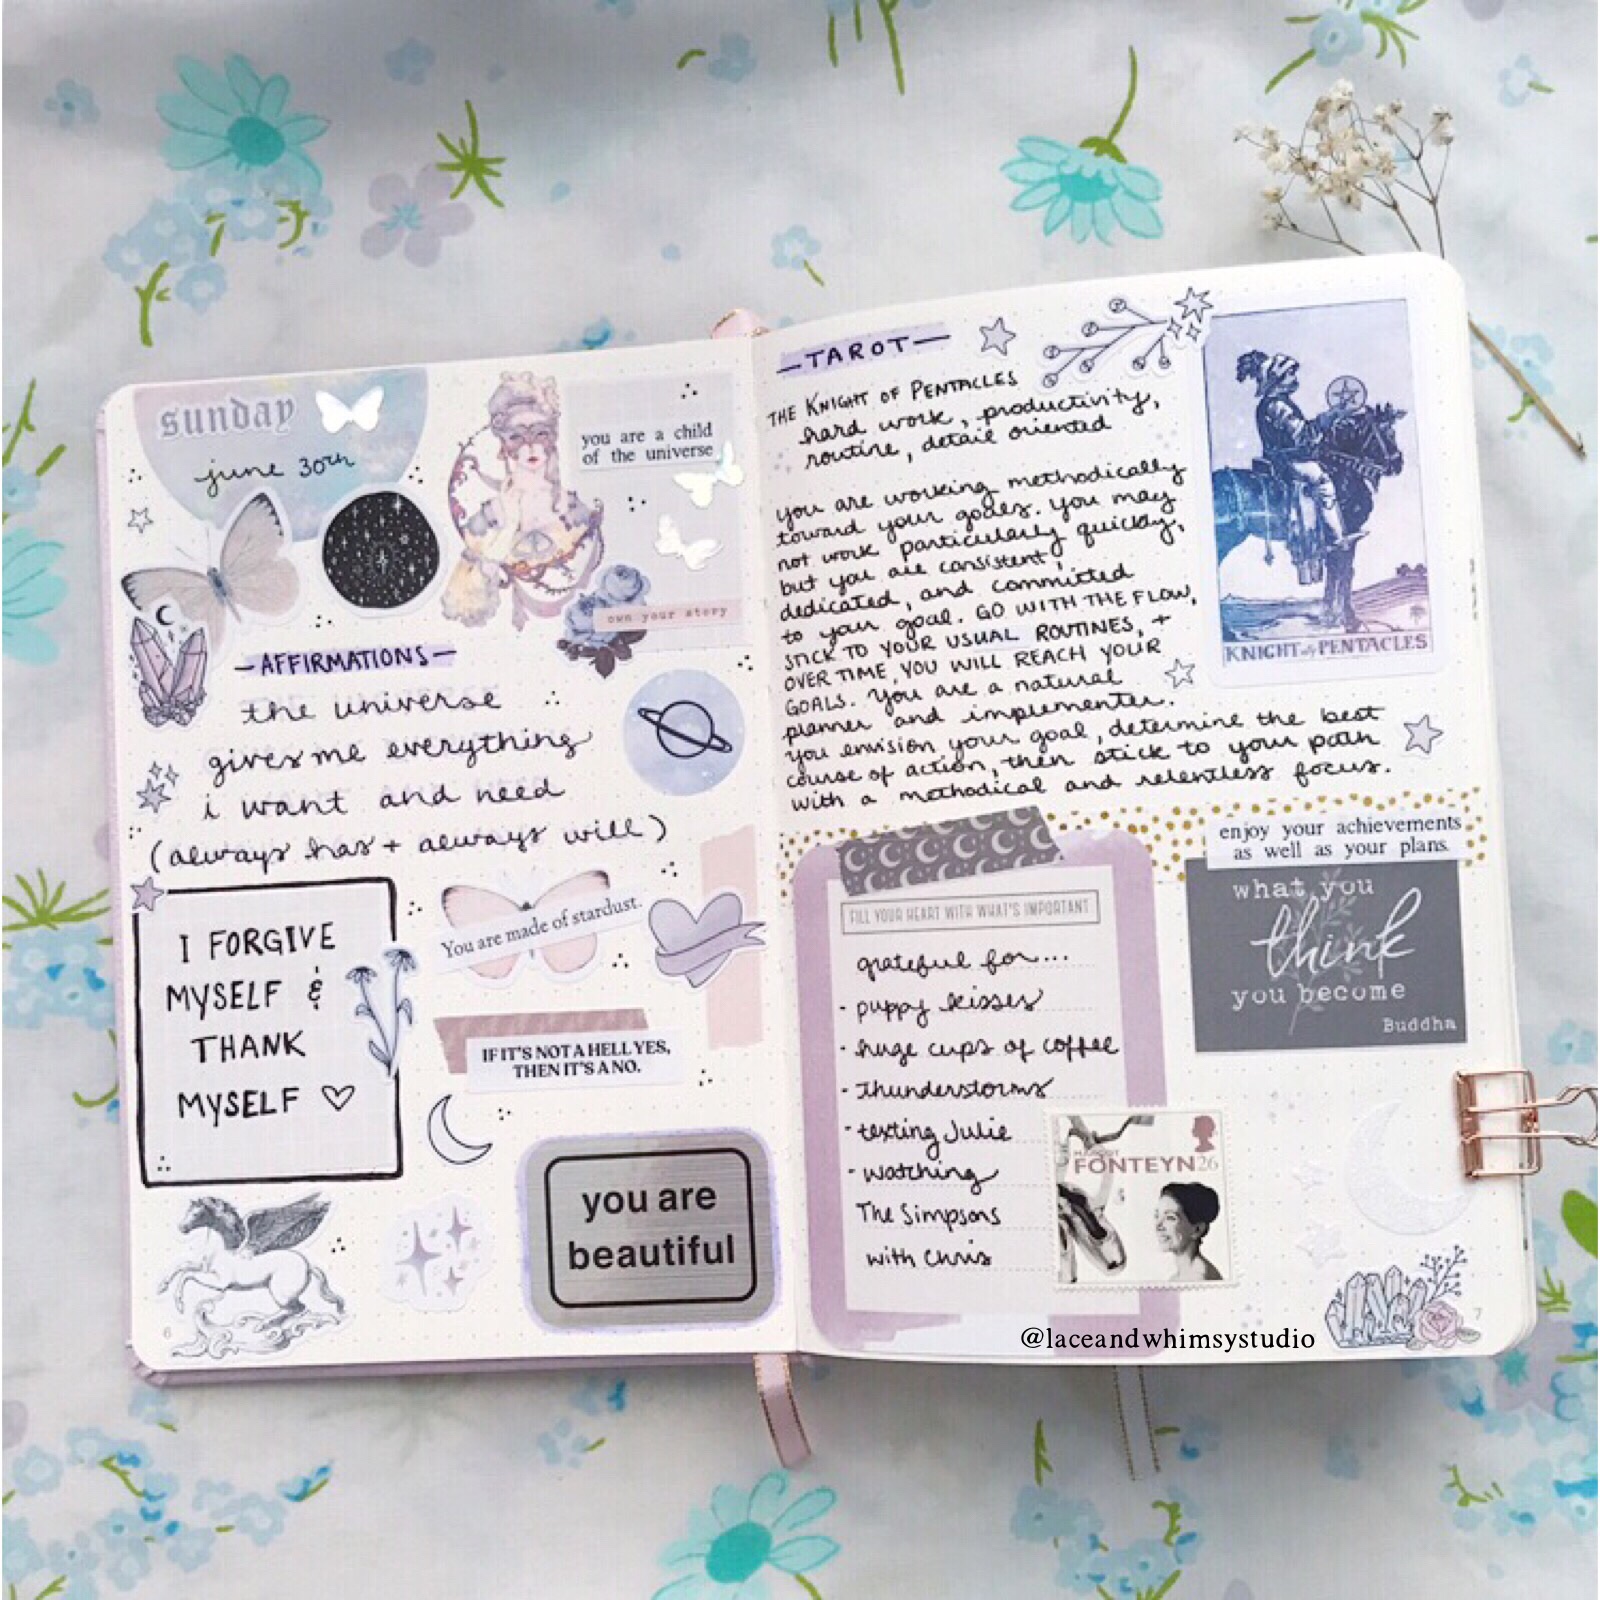 sunday
june 30th
you are a child
of the universe
own your story
—AFFIRMATIONS—
the universe
gives me everything
i want and need
(always has + always will)
I FORGIVE
MYSELF &
THANK
MYSELF ♡
You are made of stardust.
IF IT'S NOT A HELL YES,
THEN IT'S A NO.
you are
beautiful
6
—TAROT—
THE KNIGHT OF PENTACLES
hard work, productivity,
routine, detail oriented
you are working methodically
toward your goals. you may
not work particularly quickly,
but you are consistent,
dedicated, and committed
to your goal. GO WITH THE FLOW,
STICK TO YOUR USUAL ROUTINES, +
OVER TIME, YOU WILL REACH YOUR
GOALS. you are a natural
planner and implementer.
you envision your goal, determine the best
course of action, then stick to your path
with a methodical and relentless focus.
KNIGHT of PENTACLES
FILL YOUR HEART WITH WHAT'S IMPORTANT
grateful for...
- puppy kisses
- huge cups of coffee
- thunderstorms
- texting Julie
- watching
The Simpsons
with Chris
enjoy your achievements
as well as your plans.
what you
think
you become
Buddha
MARGOT
FONTEYN 26
@laceandwhimsystudio
7